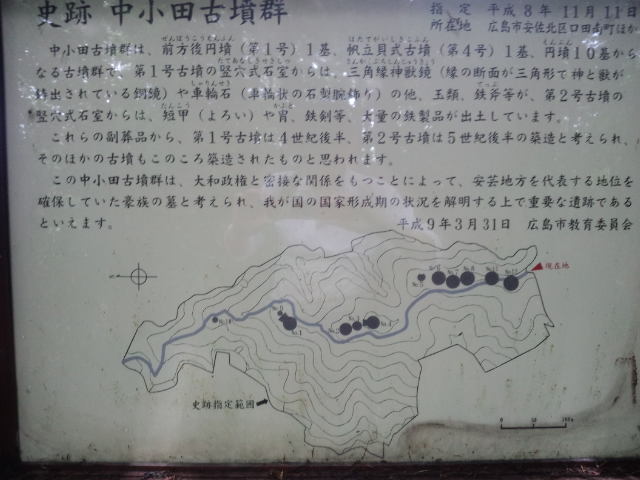 史跡 中小田古墳群
指定 平成8年11月11日
所在地 広島市安佐北区口田南町ほか
中小田古墳群は、前方後円墳（第1号）1基、帆立貝式古墳（第4号）1基、円墳10基から
なる古墳群で、第1号古墳の竪穴式石室からは、三角縁神獣鏡（縁の断面が三角形で神と獣が
鋳出されている銅鏡）や車輪石（車輪状の石製腕飾り）の他、玉類、鉄斧等が、第2号古墳の
竪穴式石室からは、短甲（よろい）や冑、鉄剣等、大量の鉄製品が出土しています。
これらの副葬品から、第1号古墳は4世紀後半、第2号古墳は5世紀後半の築造と考えられ、
そのほかの古墳もこのころ築造されたものと思われます。
この中小田古墳群は、大和政権と密接な関係をもつことによって、安芸地方を代表する地位を
確保していた豪族の墓と考えられ、我が国の国家形成期の状況を解明する上で重要な遺跡である
といえます。
平成9年3月31日 広島市教育委員会
現在地
史跡指定範囲